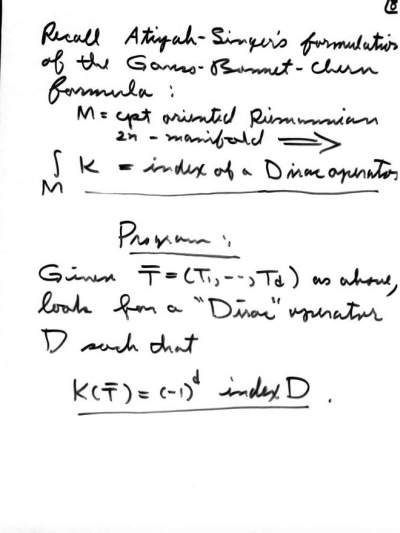 18
Recall Atiyah-Singer's formulation
of the Gauss-Bonnet-Chern
formula :
M = cpt oriented Riemannian
2n - manifold ⟹
∫_M K = index of a Dirac operator
Program :
Given T̄ = (T₁, --, T_d) as above,
look for a "Dirac" operator
D such that
K(T̄) = (-1)^d index D .